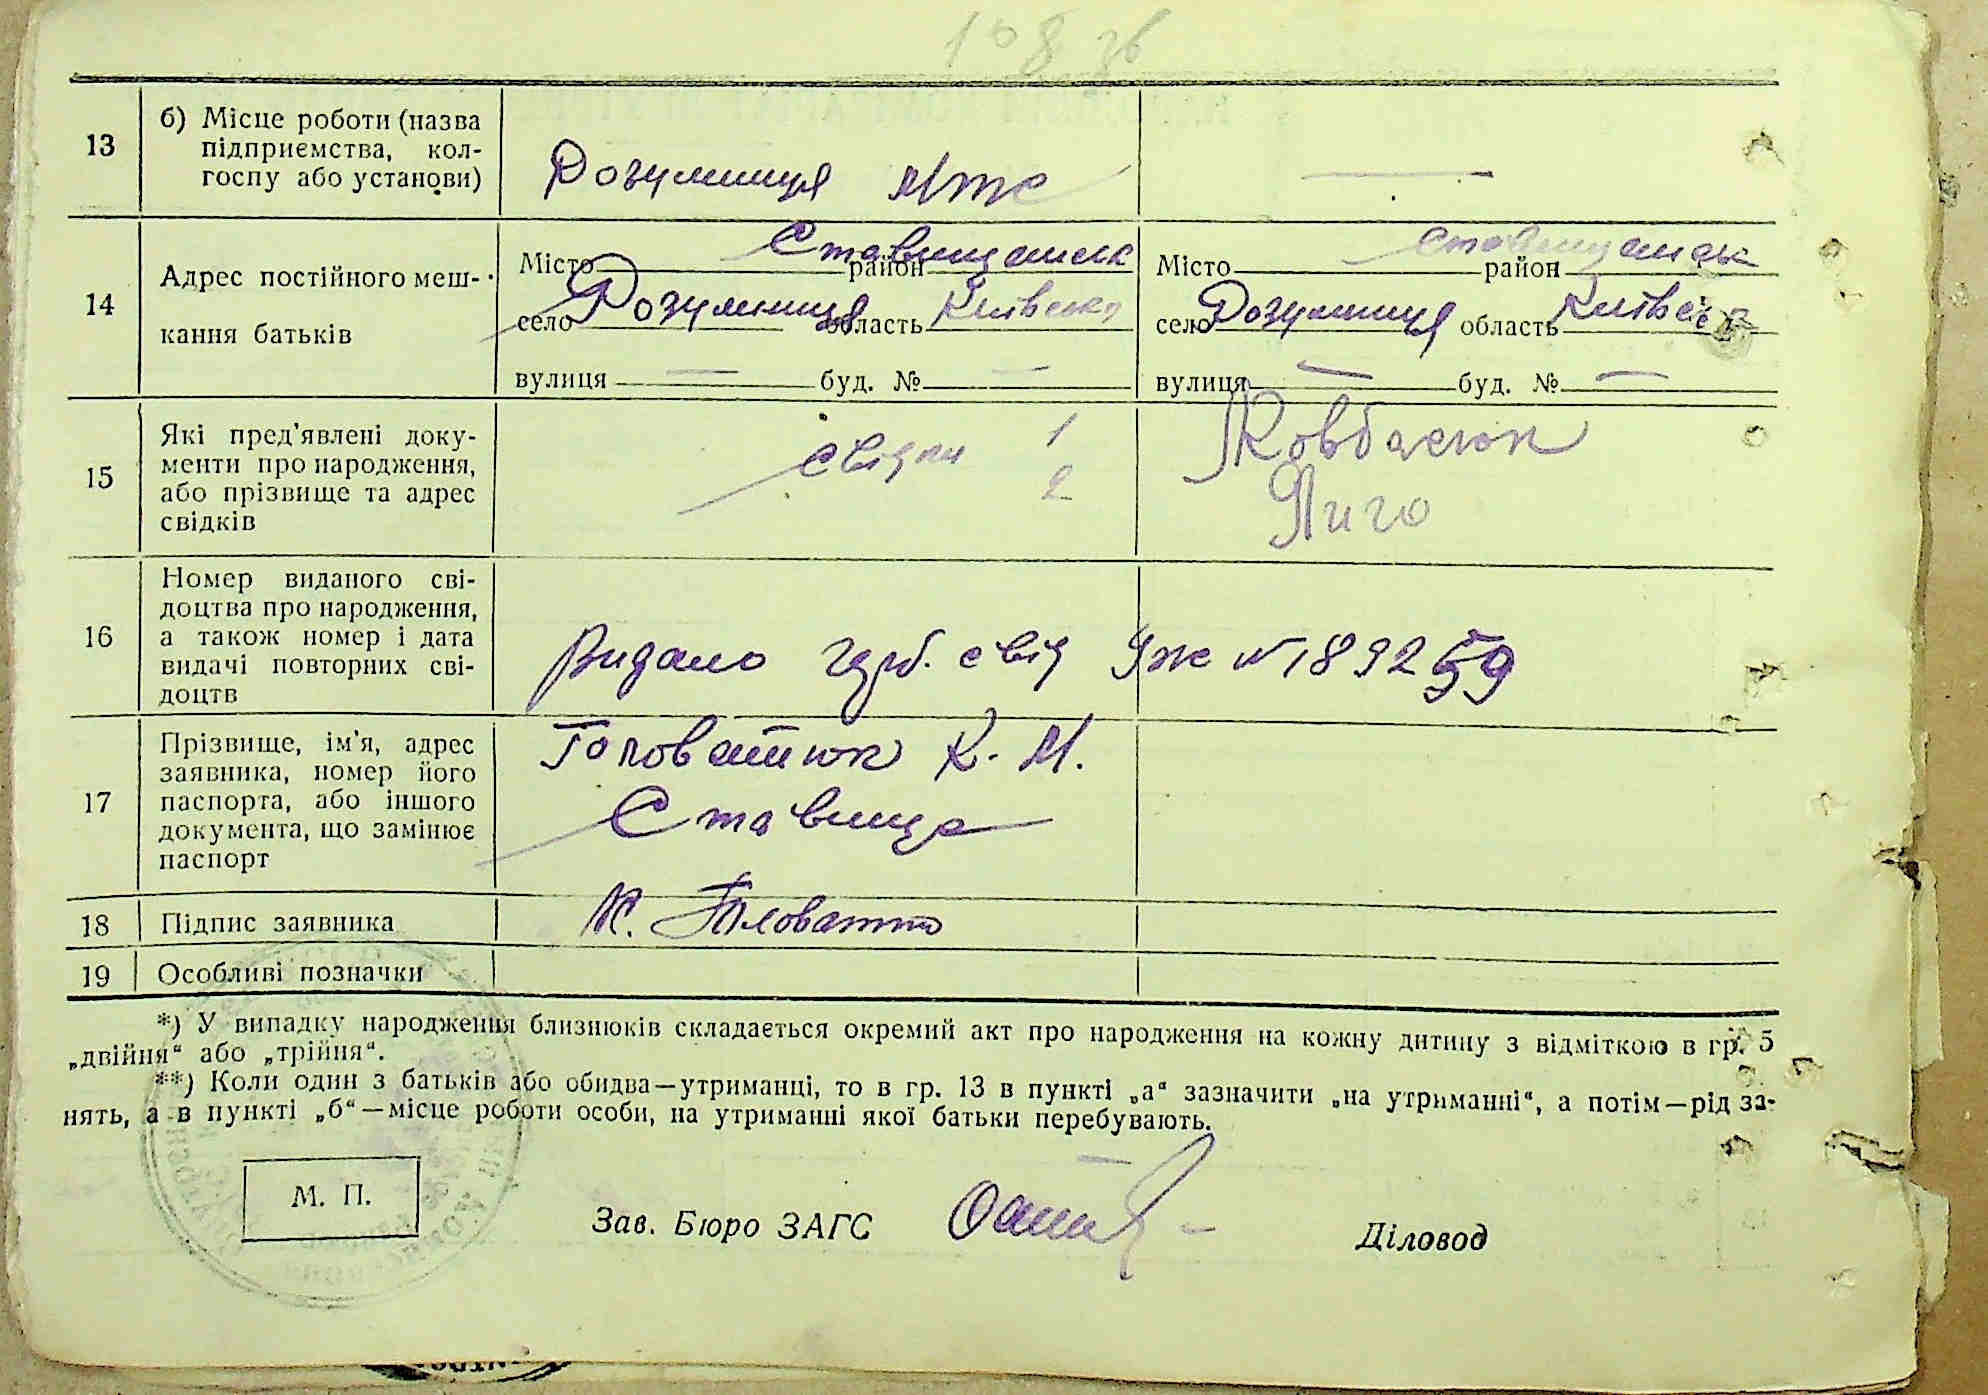 13
б) Місце роботи (назва
підприємства, кол-
госпу або установи)
Розумниця МТС
14
Адрес постійного меш-
кання батьків
Місто район Ставищанськ
село Розумниця область Київська
вулиця — буд. № —
Місто район Ставищанськ
село Розумниця область Київськ
вулиця — буд. № —
15
Які пред'явлені доку-
менти про народження,
або прізвище та адрес
свідків
свідки 1 Ковбасюк
2 Лиго
16
Номер виданого сві-
доцтва про народження,
а також номер і дата
видачі повторних сві-
доцтв
Видано свід № 189259
17
Прізвище, ім'я, адрес
заявника, номер його
паспорта, або іншого
документа, що замінює
паспорт
Головатюк К. М.
Ставище
18
Підпис заявника
К. Головатю
19
Особливі позначки
*) У випадку народження близнюків складається окремий акт про народження на кожну дитину з відміткою в гр. 5
„двійня“ або „трійня“.
**) Коли один з батьків або обидва—утриманці, то в гр. 13 в пункті „а“ зазначити „на утриманні“, а потім—рід за-
нять, а в пункті „б“—місце роботи особи, на утриманні якої батьки перебувають.
М. П.
Зав. Бюро ЗАГС
Діловод